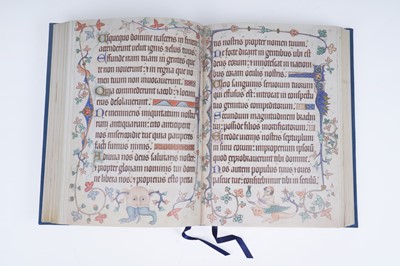 Usquequo domine irasceris in finem
accendetur velut ignis zelus tuus.
Effunde iram tuam in gentes que
te non noverunt; et in regna que no
men tuum non invocaverunt.
Quia comederunt iacob; et locum
eius desolaverunt.
Ne memineris iniquitatum nostrarum
antiquarum; cito anticipent nos
misericordie tue quia pauperes
facti sumus nimis.
Adiuva nos deus salutaris noster
et propter gloriam nominis tui domine
libera nos; et propicius esto pecca
tis nostris propter nomen tuum.
Ne forte dicant in gentibus ubi est
deus eorum; et innotescat in nationi
bus coram oculis nostris.
Ultio sanguinis servorum tuorum
qui effusus est; introeat in conspectu
tuo gemitus compeditorum.
Secundum magnitudinem brachii
tui; posside filios mortificatorum.
Et redde vicinis nostris septuplum
in sinu eorum; improperium ipsorum
quod exprobraverunt tibi domine.
Nos autem populus tuus et oves
pascue tue; confitebimur tibi in seculum.